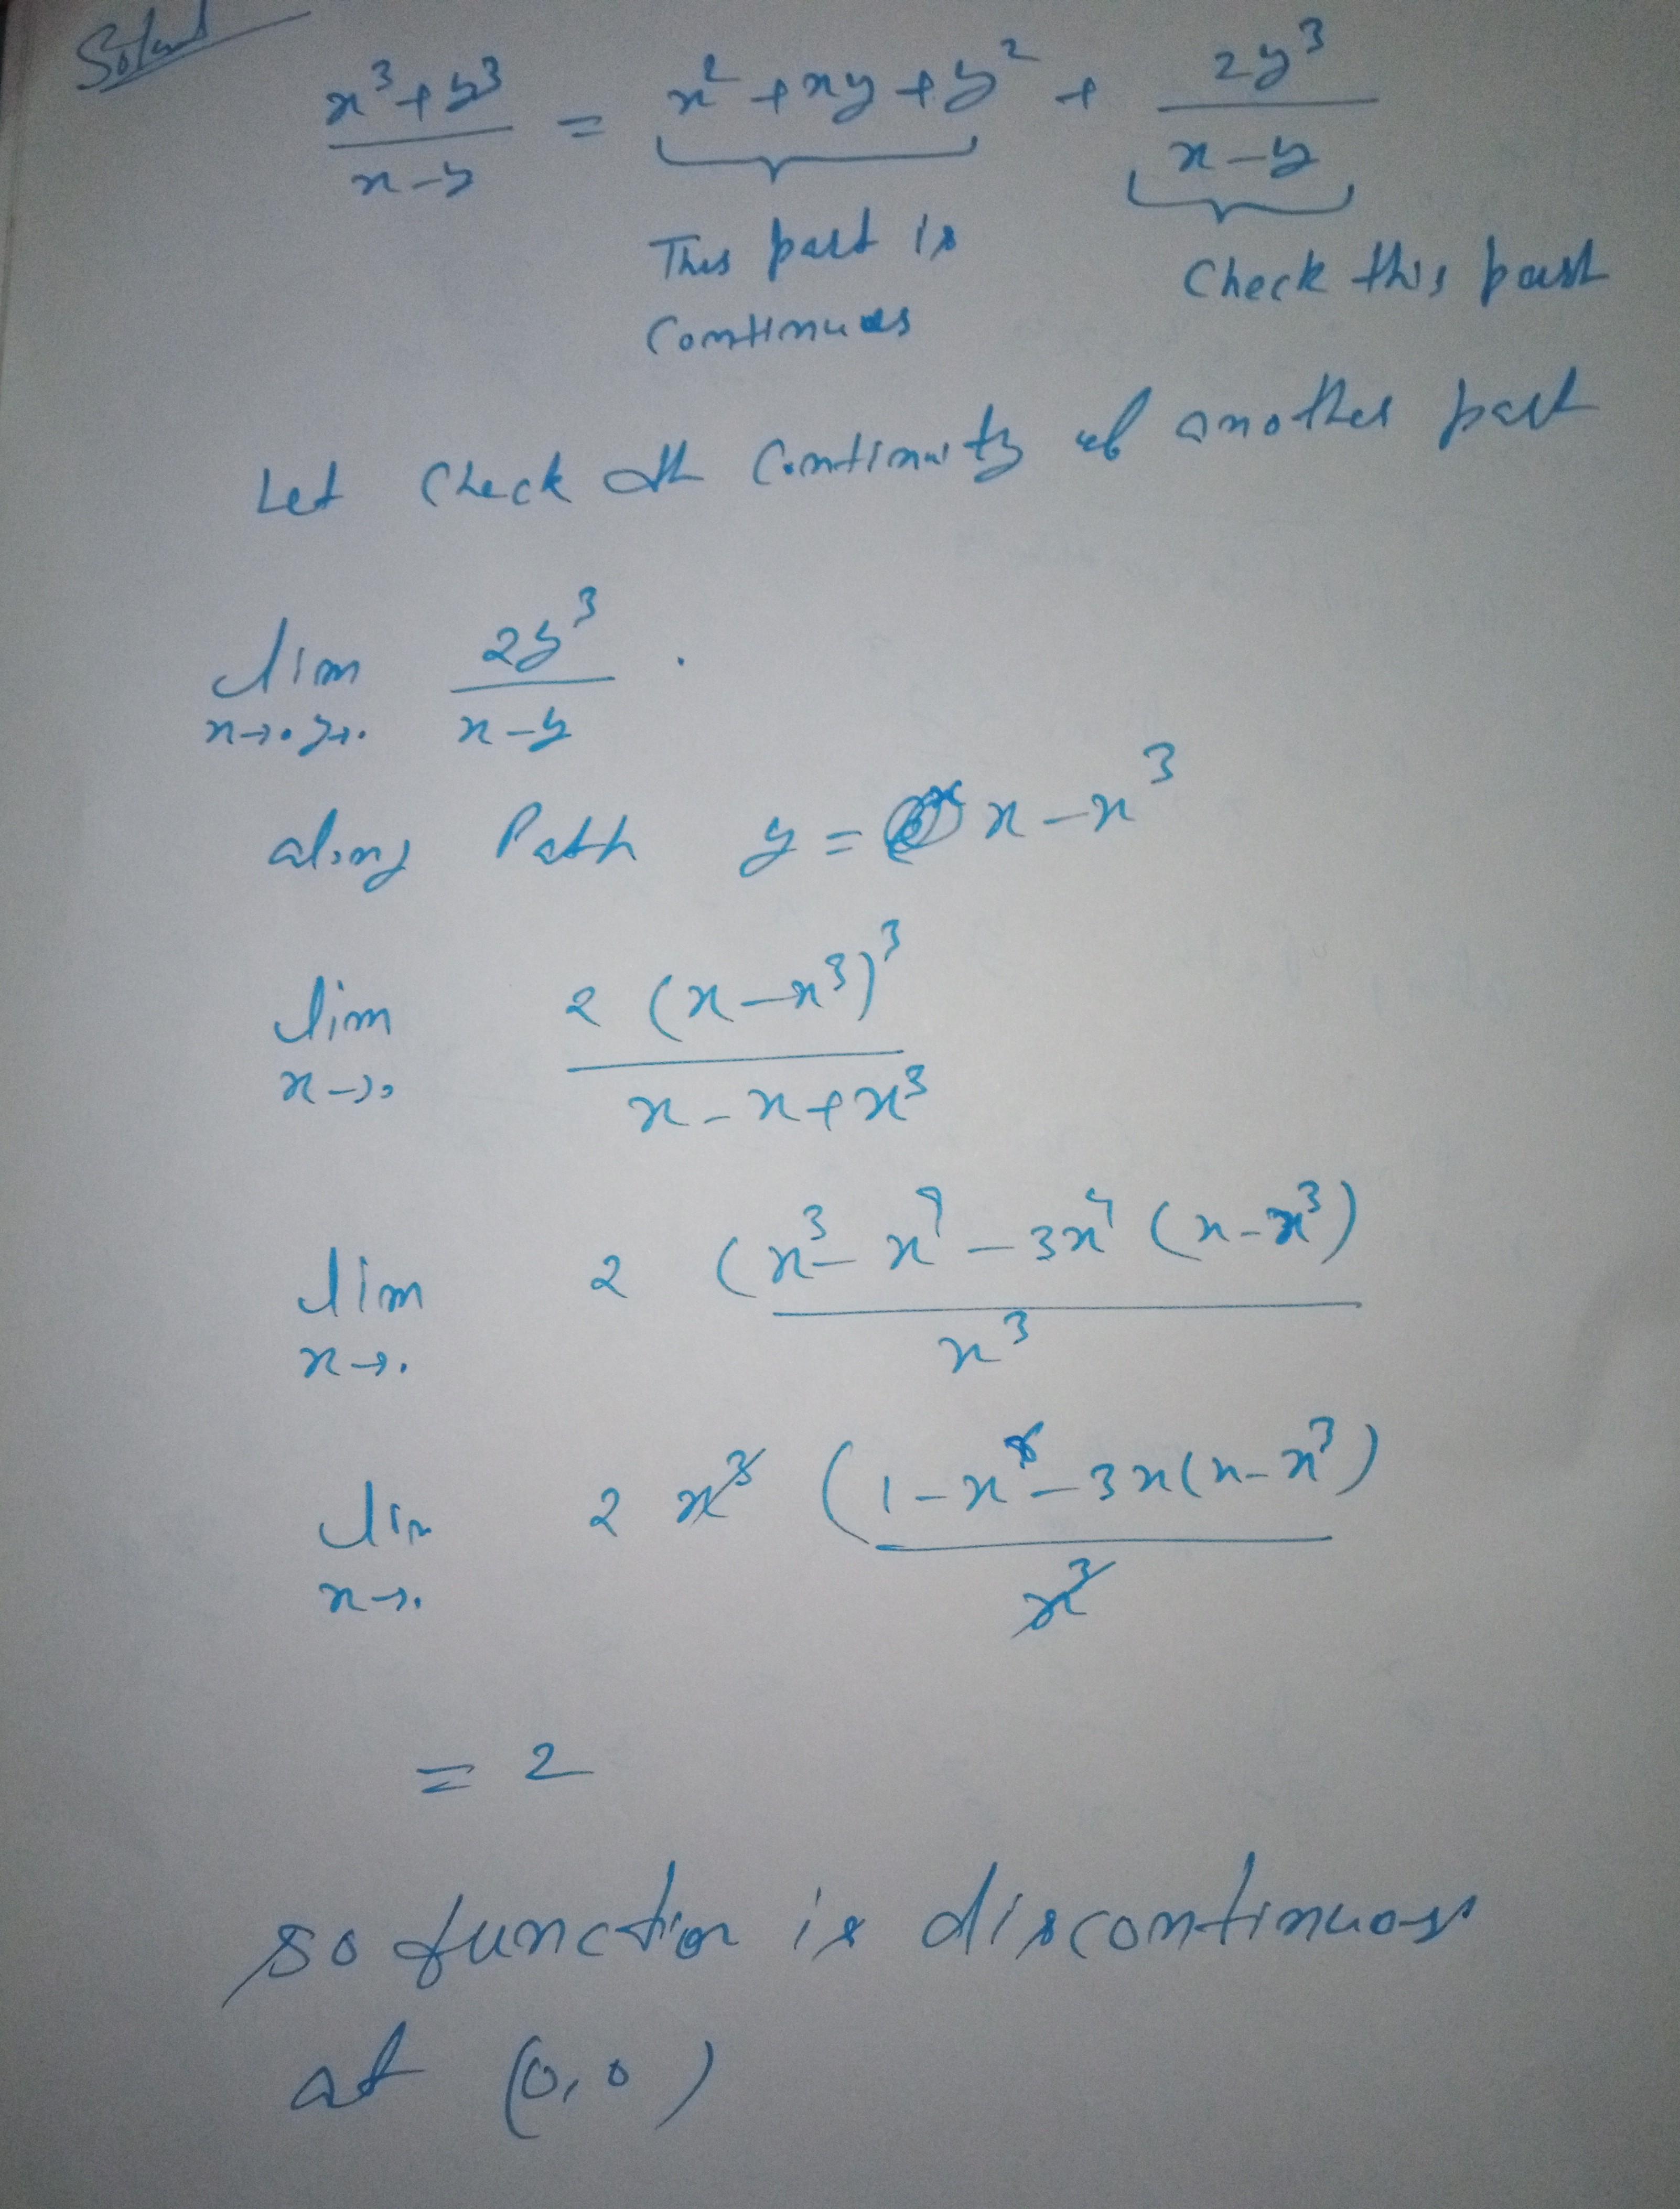 Solut
x³+y³ / x-y = x²+xy+y² + 2y³ / x-y
This part is Check this part
Continues
Let Check th Continuity of another part
lim x→0 y→0 2y³ / x-y .
along Path y = x-x³
lim x→0 2 (x-x³)³ / x-x+x³
lim x→0 2 (x³-x⁹-3x⁴(x-x³) / x³
lim x→0 2 x³ (1-x⁶-3x(x-x³) / x³
= 2
so function is discontinuous
at (0,0)